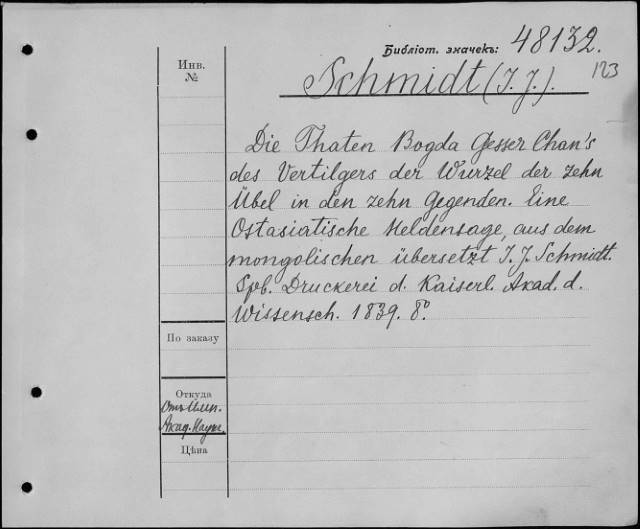 Библіот. значекъ: 48132.
Инв.
№
Schmidt (I. J.).
123
Die Thaten Bogda Gesser Chan's
des Vertilgers der Wurzel der zehn
Übel in den zehn Gegenden. Eine
Ostasiatische Heldensage, aus dem
mongolischen übersetzt, I. J. Schmidt.
Spb. Druckerei d. Kaiserl. Akad. d.
Wissensch. 1839. 8°.
По заказу
Откуда
Отъ Имп.
Акад. Наукъ.
Цѣна